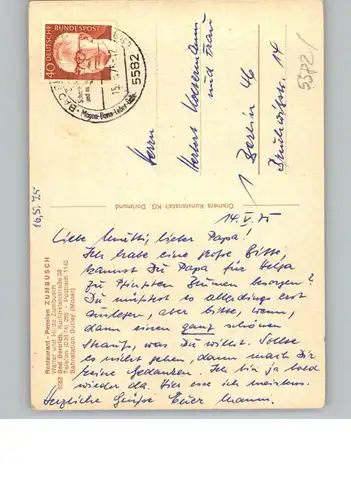 40 DEUTSCHE BUNDESPOST
5582
Magen-Darm-Leber-Galle
Herrn
und Frau
1 Berlin 46
14
5582/
Cramers Kunstanstalt KG, Dortmund
16.5.75
Restaurant - Pension ZUMBUSCH
Walter und Hilde Zumbusch
5582 Bad Bertrich, Kurfürstenstraße 38
Telefon (02674) 295 - Postfach 1145
Bahnstation Bullay (Mosel)
14. V. 75
Liebe Mutti, lieber Papa!
Ich habe eine große Bitte,
kannst Du Papa für Helga
zu Pfingsten Blumen besorgen?
Du müßtest es allerdings erst
auslegen, aber bitte, wenn,
dann einen ganz schönen
Strauß, was Du willst. Sollte
es nicht gehen, dann mach Dir
keine Gedanken. Ich bin ja bald
wieder da. Hier esse ich meistens.
Herzliche Grüße Euer Manni.